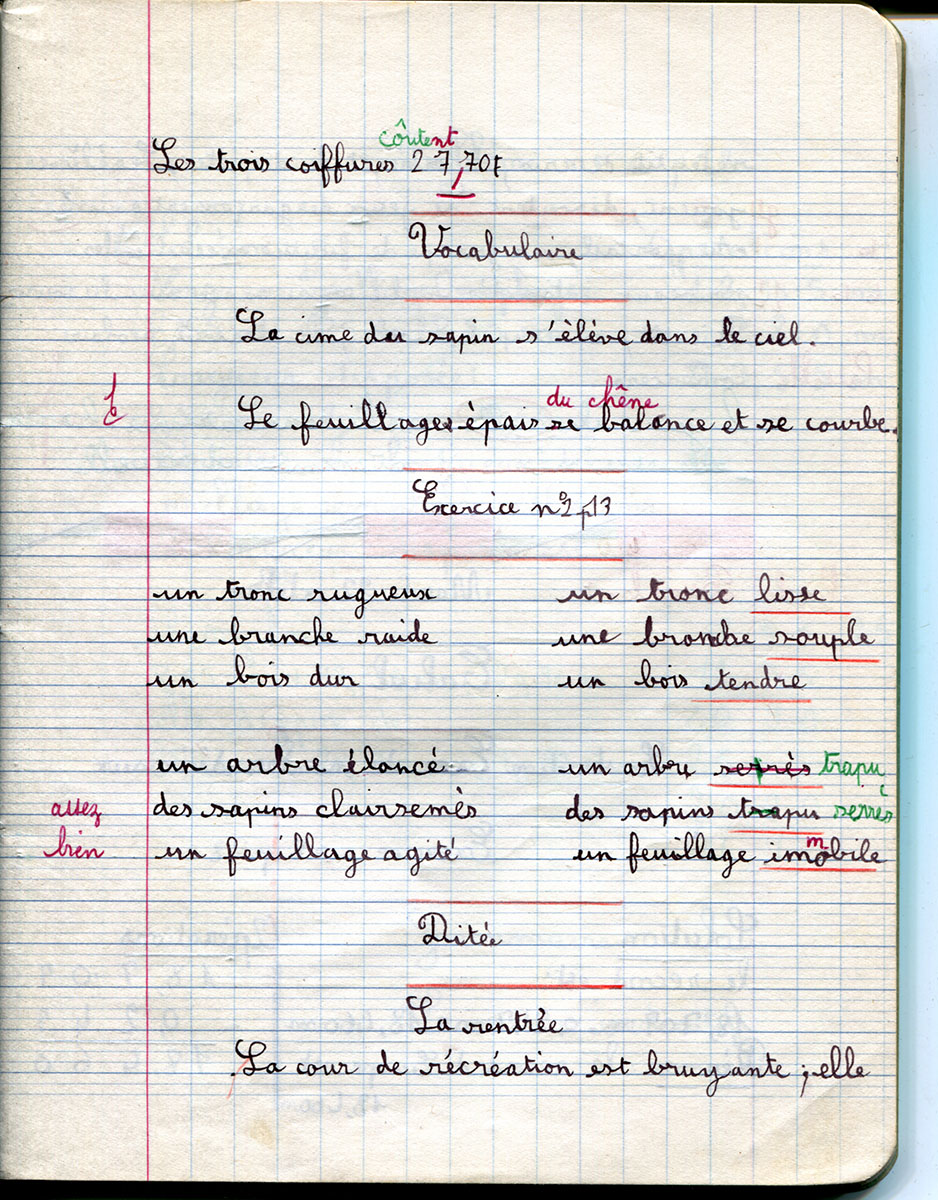 coûtent
Les trois coiffures 27,70F
Vocabulaire
La cime du sapin s'élève dans le ciel.
du chêne
Le feuillage épais se balance et se courbe.
Exercice n°2 p13
un tronc rugueux un tronc lisse
une branche raide une branche souple
un bois dur un bois tendre
un arbre élancé un arbre serrés trapu
des sapins clairsemés des sapins trapu serrés
assez
bien
un feuillage agité un feuillage imobile
m
Ditée
La rentrée
La cour de récréation est bruyante ; elle